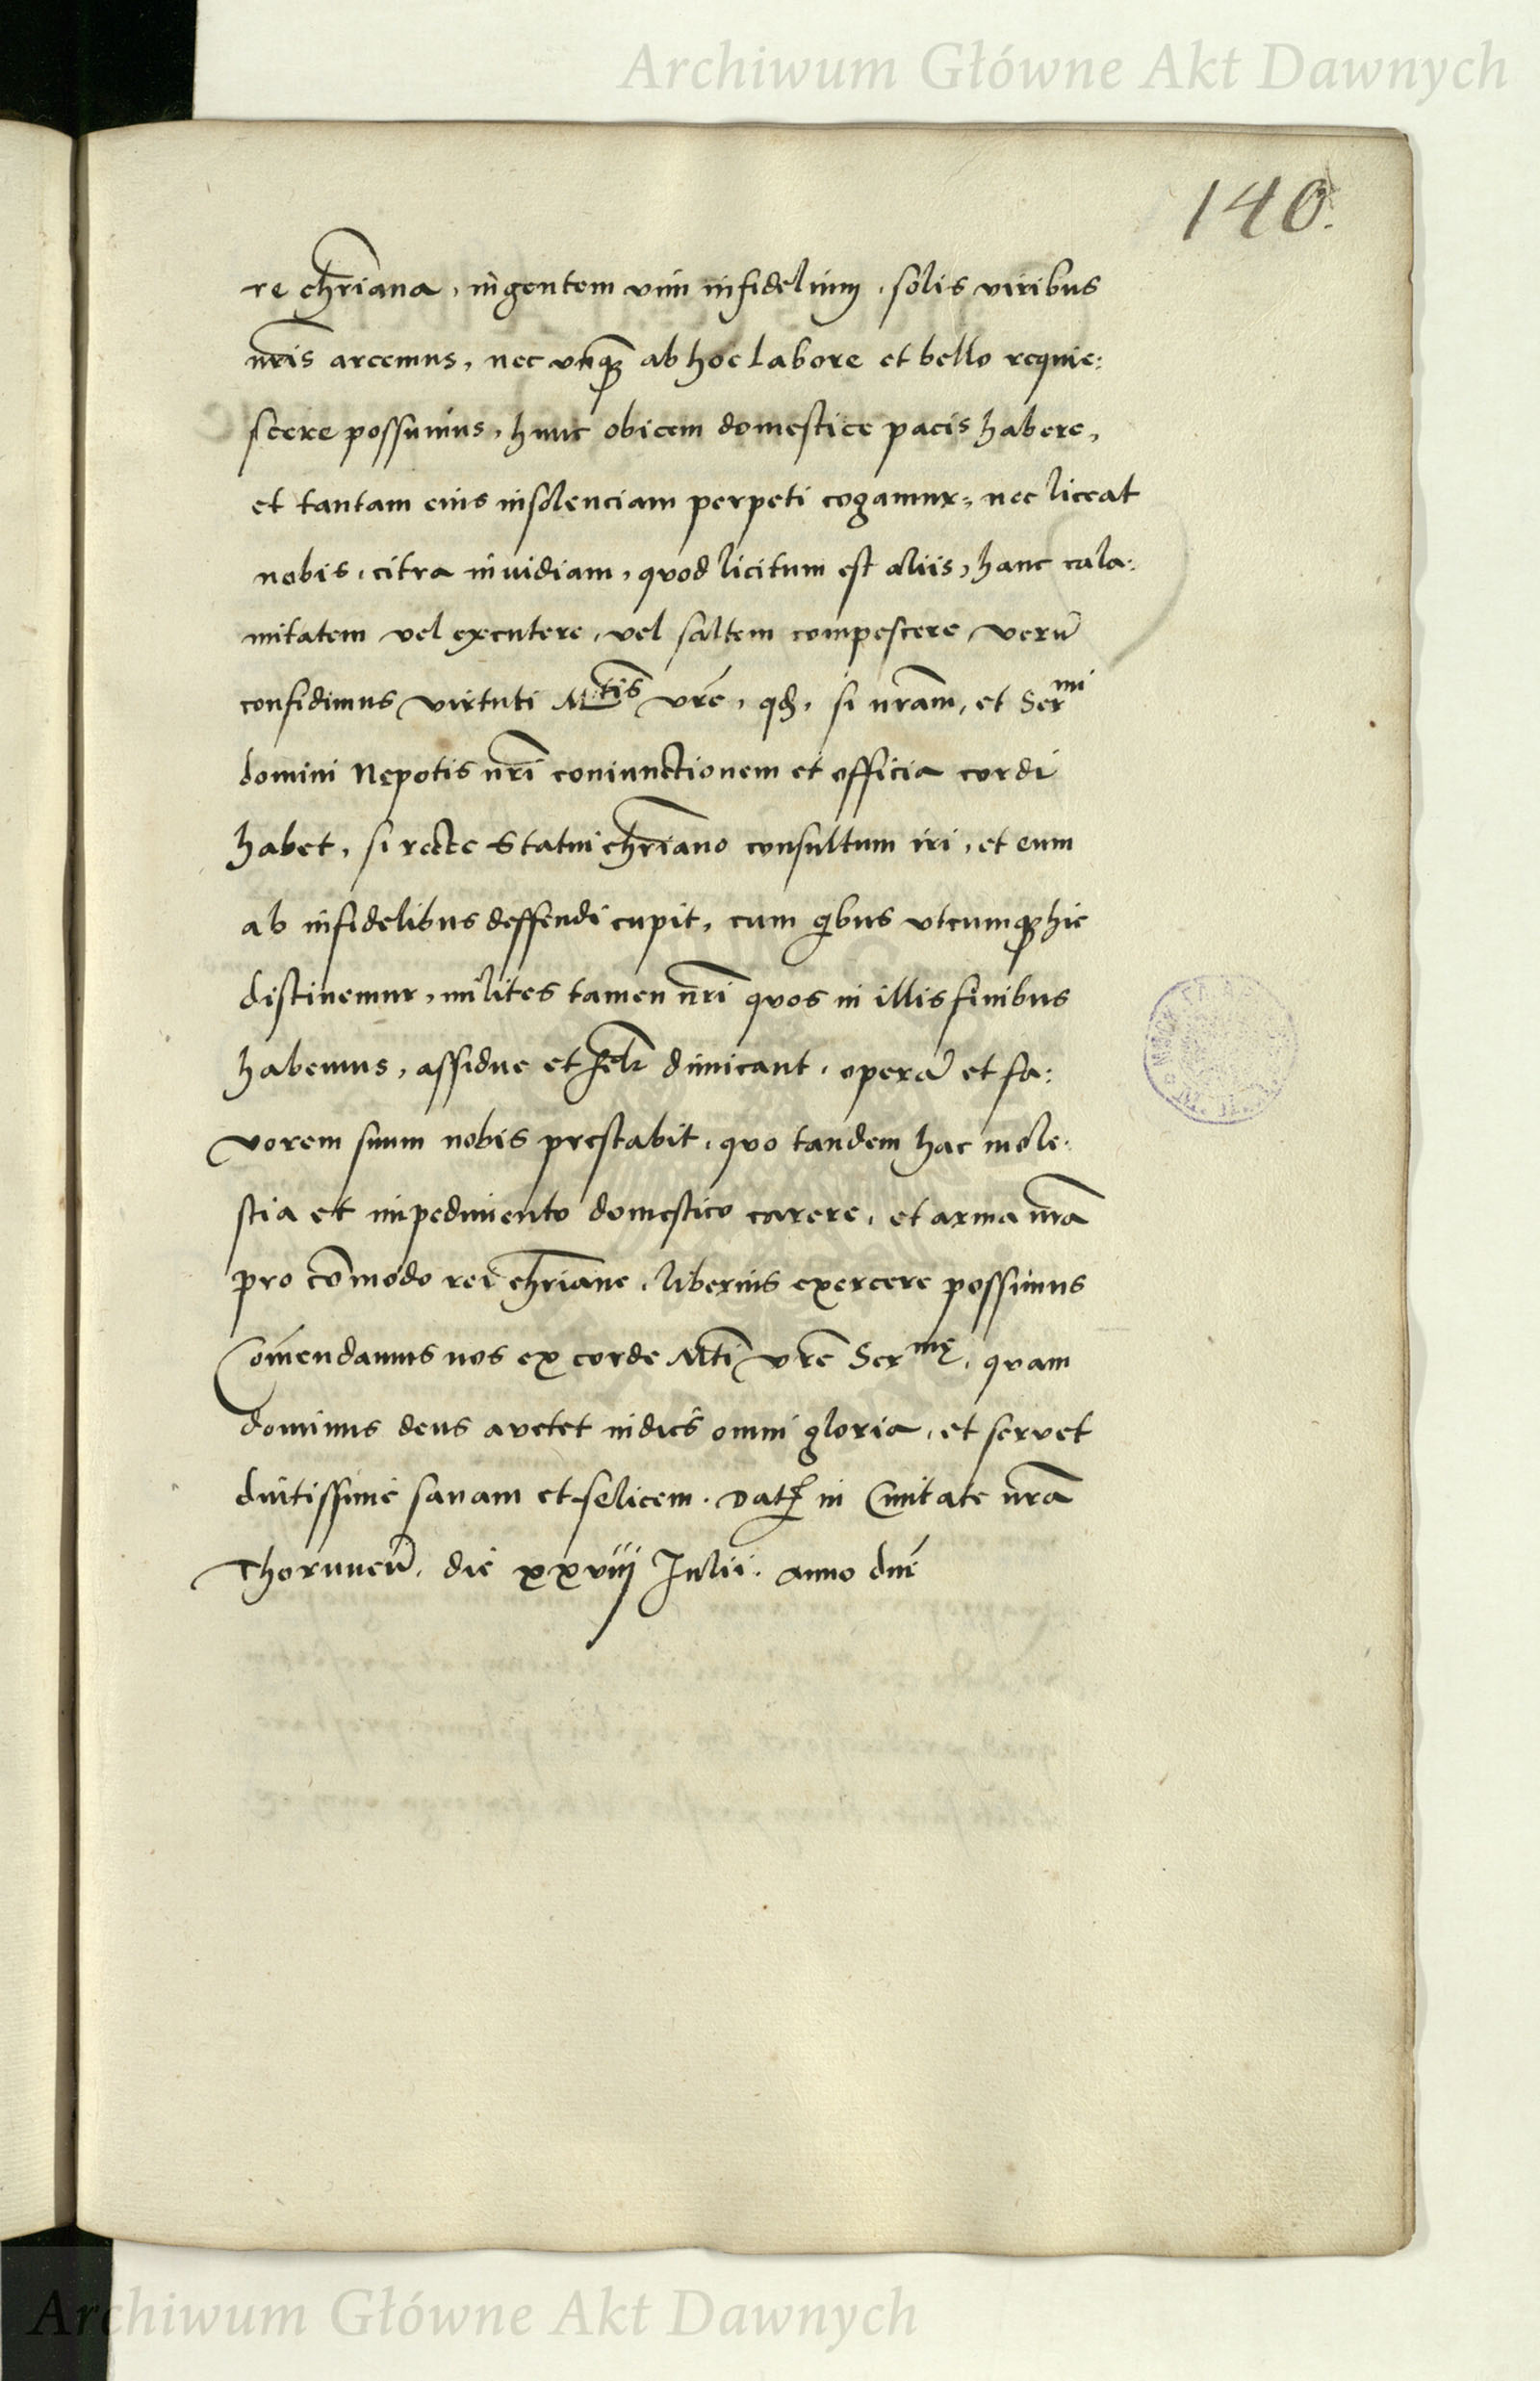 Archiwum Główne Akt Dawnych
140.
re chr̄iana, ingentem vim infidelium, solis viribus
nr̄is arcemus, nec vnq̄ȝ ab hoc labore et bello requie:
scere possumus, hunc obicem domestice pacis habere,
et tantam eius insolenciam perpeti cogamur, nec liceat
nobis, citra inuidiam, quod licitum est aliis, hanc cala:
mitatem vel excutere, vel saltem compescere, verū
confidimus virtuti M.tis vrē, qđ, si nram̄, et Sermi
domini Nepotis nr̄i coniunctionem et officia cordi
habet, si recte Statui chr̄iano consultum iri, et eum
ab infidelibus deffendi cupit, cum qibus vtcumqȝ hic
distinemur, milites tamen nr̄i quos in illis finibus
habemus, assidue et felr̄ dimicant, operā et fa:
vorem suum nobis prestabit, quo tandem hac mole:
stia et impedimento domestico carere, et arma nr̄a
pro cōmodo rei chr̄iane, liberius exercere possimus
Cōmendamus nos ex corde Mti vrē Sermę, quam
dominus deus auctet indies omni gloria, et servet
diutissime sanam et felicem. Dat in Ciuitate nr̄a
Thoruneń, die xxviij Julii. anno dnī
Archiwum Główne Akt Dawnych